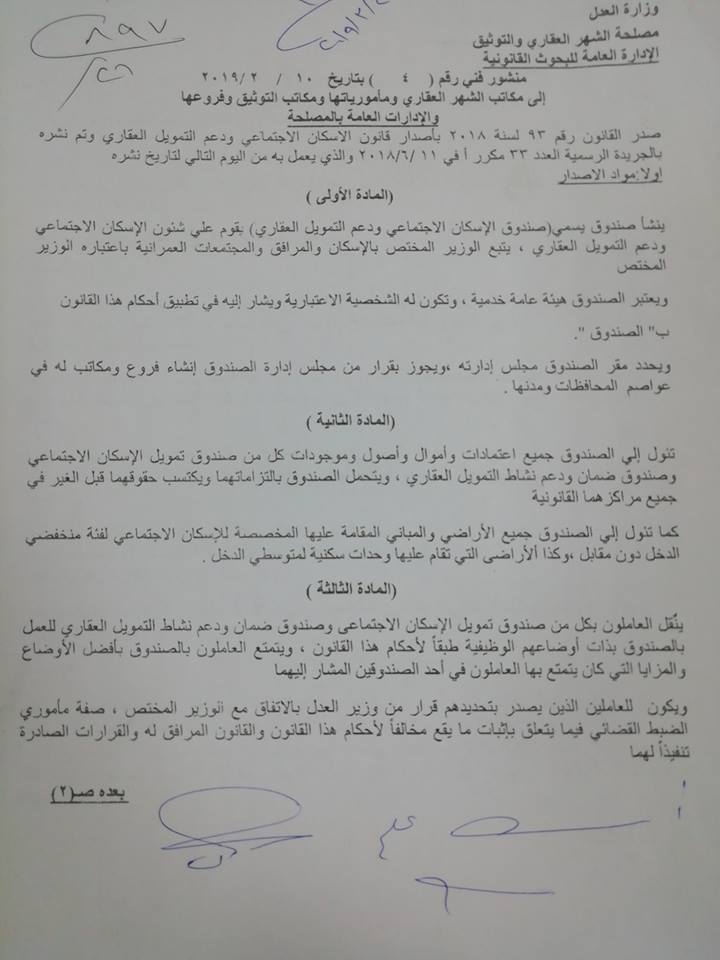 وزارة العدل
مصلحة الشهر العقاري والتوثيق
الإدارة العامة للبحوث القانونية
٨٩٧
٢٦
منشور فني رقم ( ٤ ) بتاريخ ١٠ / ٢ /٢٠١٩
إلى مكاتب الشهر العقاري ومأمورياتها ومكاتب التوثيق وفروعها
والإدارات العامة بالمصلحة
صدر القانون رقم ٩٣ لسنة ٢٠١٨ بأصدار قانون الاسكان الاجتماعي ودعم التمويل العقاري وتم نشره
بالجريدة الرسمية العدد ٣٣ مكرر أ في ١١ /٢٠١٨/٦ والذي يعمل به من اليوم التالي لتاريخ نشره
اولا:مواد الاصدار
(المادة الأولى )
ينشأ صندوق يسمي(صندوق الإسكان الاجتماعي ودعم التمويل العقاري) يقوم علي شئون الإسكان الاجتماعي
ودعم التمويل العقاري ، يتبع الوزير المختص بالإسكان والمرافق والمجتمعات العمرانية باعتباره الوزير
المختص
ويعتبر الصندوق هيئة عامة خدمية ، وتكون له الشخصية الاعتبارية ويشار إليه في تطبيق أحكام هذا القانون
ب" الصندوق ".
ويحدد مقر الصندوق مجلس إدارته ،ويجوز بقرار من مجلس إدارة الصندوق إنشاء فروع ومكاتب له في
عواصم المحافظات ومدنها .
(المادة الثانية )
تئول إلي الصندوق جميع اعتمادات وأموال وأصول وموجودات كل من صندوق تمويل الإسكان الاجتماعي
وصندوق ضمان ودعم نشاط التمويل العقاري ، ويتحمل الصندوق بالتزاماتهما ويكتسب حقوقهما قبل الغير في
جميع مراكزهما القانونية
كما تئول إلي الصندوق جميع الأراضي والمباني المقامة عليها المخصصة للإسكان الاجتماعي لفئة منخفضي
الدخل دون مقابل ،وكذا ألأراضى التي تقام عليها وحدات سكنية لمتوسطي الدخل .
(المادة الثالثة )
ينُقل العاملون بكل من صندوق تمويل الإسكان الاجتماعى وصندوق ضمان ودعم نشاط التمويل العقاري للعمل
بالصندوق بذات أوضاعهم الوظيفية طبقاً لأحكام هذا القانون ، ويتمتع العاملون بالصندوق بأفضل الأوضاع
والمزايا التي كان يتمتع بها العاملون في أحد الصندوقين المشار إليهما
ويكون للعاملين الذين يصدر بتحديدهم قرار من وزير العدل بالاتفاق مع الوزير المختص ، صفة مأموري
الضبط القضائي فيما يتعلق بإثبات ما يقع مخالفاً لأحكام هذا القانون والقانون المرافق له والقرارات الصادرة
تنفيذاً لهما
بعده صـ(٢)